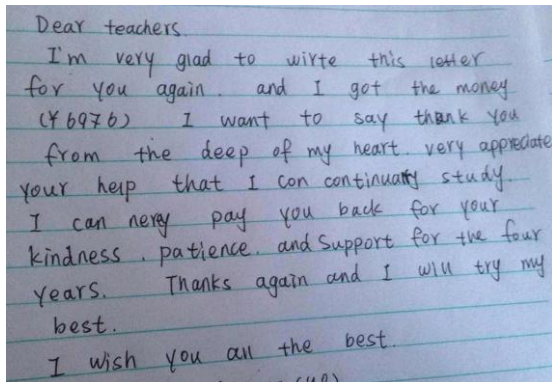 Dear teachers.
I'm very glad to wirte this letter
for you again. and I got the money
(¥6976) I want to say thank you
from the deep of my heart. very appreciate
your help that I con continuary study.
I can nery pay you back for your
kindness, patience. and support for the four
years. Thanks again and I will try my
best.
I wish you all the best.